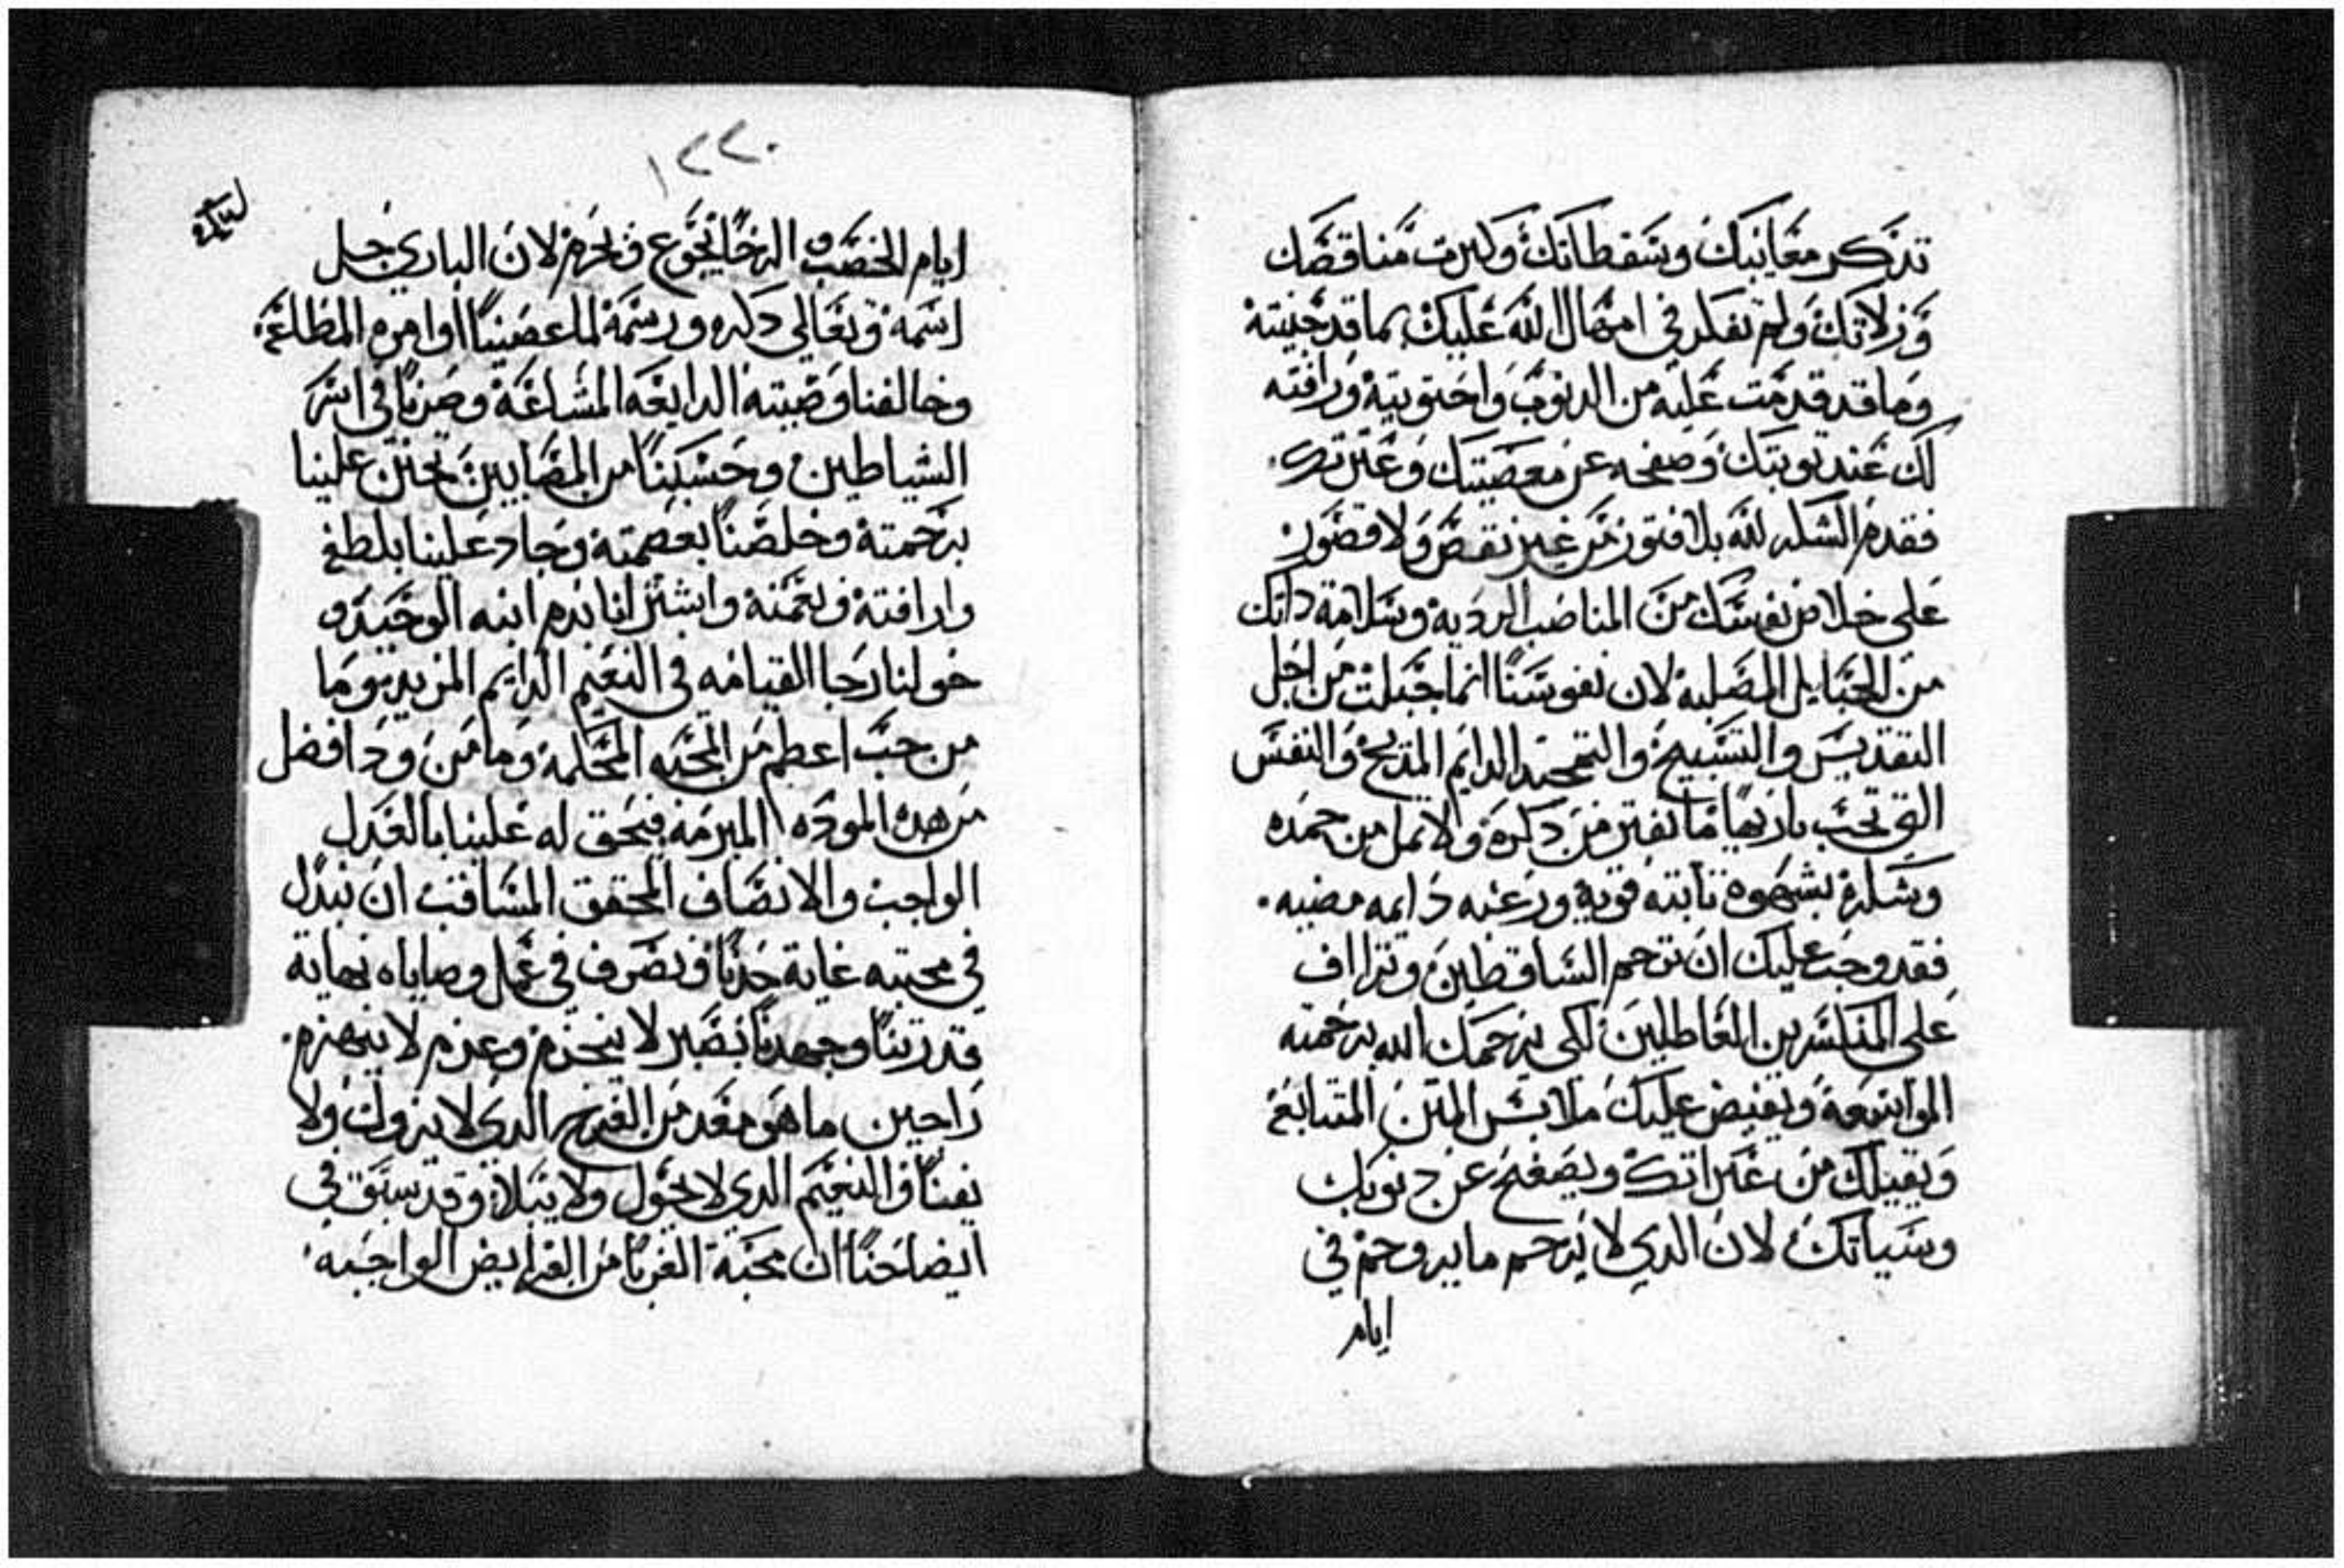 تذكر معايبك وسقطاتك وكبرت مناقصك
وزلاتك ولم تفكر في امهال الله عليك بما قد جنيته
وما قد قدمت عليه من الدنوب واحتويته ورافته
لك عند توبتك وصفحه عن معصيتك وعترتك.
فقدم الشكر لله بلا فتور من غير نقص ولا قصور
على خلاص نفسك من المناصب الرديه وسلامة داتك
من الحبايل المصليه لان نفوسنا انما جبلت من اجل
التقديس والتسبيح والتمجيد الدايم المديح والنفس
التي تحب باريها ما تفتر من دكره ولا تمل من حمده
وشكره بشهوة تابته قويه ورغبه دايمه مضيه.
فقد وجب عليك ان ترحم الساقطين وتتراف
على المنكسرين العاطلين لكي يرحمك الله برحمته
الواسعة ويفيض عليك ملابس المنن المتسابغه
ويقيلك من عتراتك ويصفح عن دنوبك
وسياتك لان الدي لا يرحم ما يروحم في
ايام
١٢٢٠
ايام الخصب والرخا يجوع ويحرم لان الباري جل
اسمه وتعالى دكره ورسمه لما عصينا اوامره المطاعه
وخالفنا وصيته الدايعه المشاعة وصرنا في اسر
الشياطين وحسبنا من المصابين تحنن علينا
برحمته وخلصنا بعصمته وجاد علينا بلطفه
وارافته ونعمته واشترانا بدم ابنه الوحيد و
خولنا رجا القيامه في النعيم الدايم المزيد وما
من حب اعظم من المحبه المحكمة وما من ود افضل
من هده الموده المبرمه فيحق له علينا بالعدل
الواجب والانصاف المحقق الساقب ان نبدل
في محبته غاية جدنا ونصرف في عمل وصاياه نهاية
قدرتنا وجهدنا بصبر لا ينخرم وعزم لا ينهزم.
راجين ما هو معد من الفرح الدي لا يزول ولا
يفنا والنعيم الدي لا يحول ولا يبلا وقد سبق في
ايضاحنا ان محبة الغربا من الفرايض الواجبه